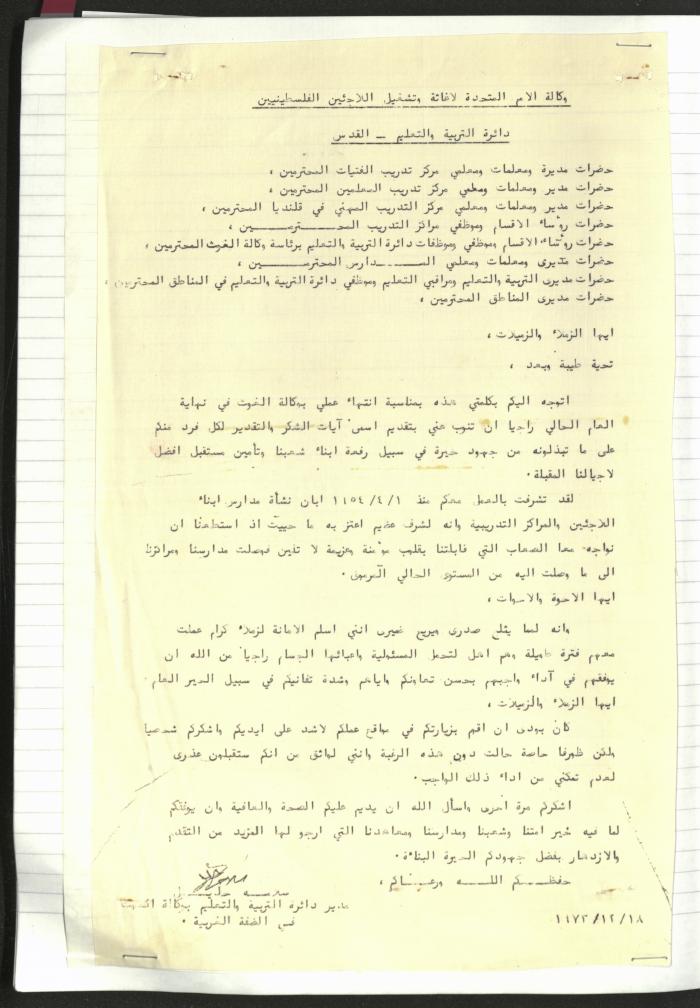 وكالة الامم المتحدة لاغاثة وتشغيل اللاجئين الفلسطينيين
دائرة التربية والتعليم ــ القدس
حضرات مديرة ومعلمات ومعلمي مركز تدريب الفتيات المحترمين ،
حضرات مدير ومعلمات ومعلمي مركز تدريب المعلمين المحترمين ،
حضرات مدير ومعلمات ومعلمي مركز التدريب المهني في قلنديا المحترمين ،
حضرات رؤساء الاقسام وموظفي مراكز التدريب المحترمــــين ،
حضرات رؤساء الاقسام وموظفي وموظفات دائرة التربية والتعليم برئاسة وكالة الغوث المحترمين ،
حضرات مديرى ومعلمات ومعلمي المـــدارس المحترمــــين ،
حضرات مديرى التربية والتعليم ومراقبي التعليم وموظفي دائرة التربية والتعليم في المناطق المحترمين ،
حضرات مديرى المناطق المحترمين ،
ايها الزملاء والزميلات ،
تحية طيبة وبعد ،
اتوجه اليكم بكلمتي هذه بمناسبة انتهاء عملي بوكالة الغوث في نهاية
العام الحالي راجيا ان تنوب عني بتقديم اسمى آيات الشكر والتقدير لكل فرد منكم
على ما تبذلونه من جهود خيرة في سبيل رفعة ابناء شعبنا وتأمين مستقبل افضل
لاجيالنا المقبلة .
لقد تشرفت بالعمل معكم منذ ١٩٥٤/٤/١ ابان نشأة مدارس ابناء
اللاجئين والمراكز التدريبية وانه لشرف عظيم اعتز به ما حييت اذ استطعنا ان
نواجه معا الصعاب التي قابلتنا بقلوب مؤمنة وعزيمة لا تلين فوصلت مدارسنا ومراكزنا
الى ما وصلت اليه من المستوى الحالي المرموق .
ايها الاخوة والاخوات ،
وانه لمما يثلج صدرى ويريح ضميرى انني اسلم الامانة لزملاء كرام عملت
معهم فترة طويلة وهم اهل لتحمل المسئولية واعبائها الجسام راجيا من الله ان
يوفقهم في آداء واجبهم بحسن تعاونكم واياهم وشدة تفانيكم في سبيل الخير العام .
ايها الزملاء والزميلات ،
كان بودى ان اقوم بزيارتكم في مواقع عملكم لاشد على ايديكم واشكركم شخصيا
ولكن ظروفا خاصة حالت دون هذه الرغبة وانني لواثق من انكم ستقبلون عذرى
لعدم تمكني من اداء ذلك الواجب .
اشكركم مرة اخرى واسأل الله ان يديم عليكم الصحة والعافية وان يوفقكم
لما فيه خير امتنا وشعبنا ومدارسنا ومعاهدنا التي ارجو لها المزيد من التقدم
والازدهار بفضل جهودكم الخيرة البناءة .
حفظـــكم اللـــه ورعـــاكم ،
مدير دائرة التربية والتعليم بوكالة الغوث
في الضفة الغربية .
١٩٧٣/١٢/١٨